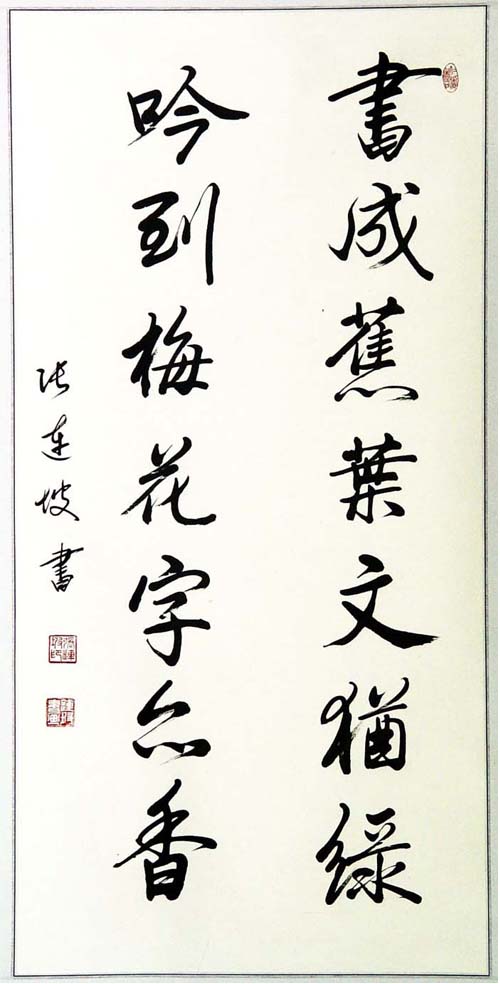 書成蕉葉文猶綠
吟到梅花字亦香
张连坡書